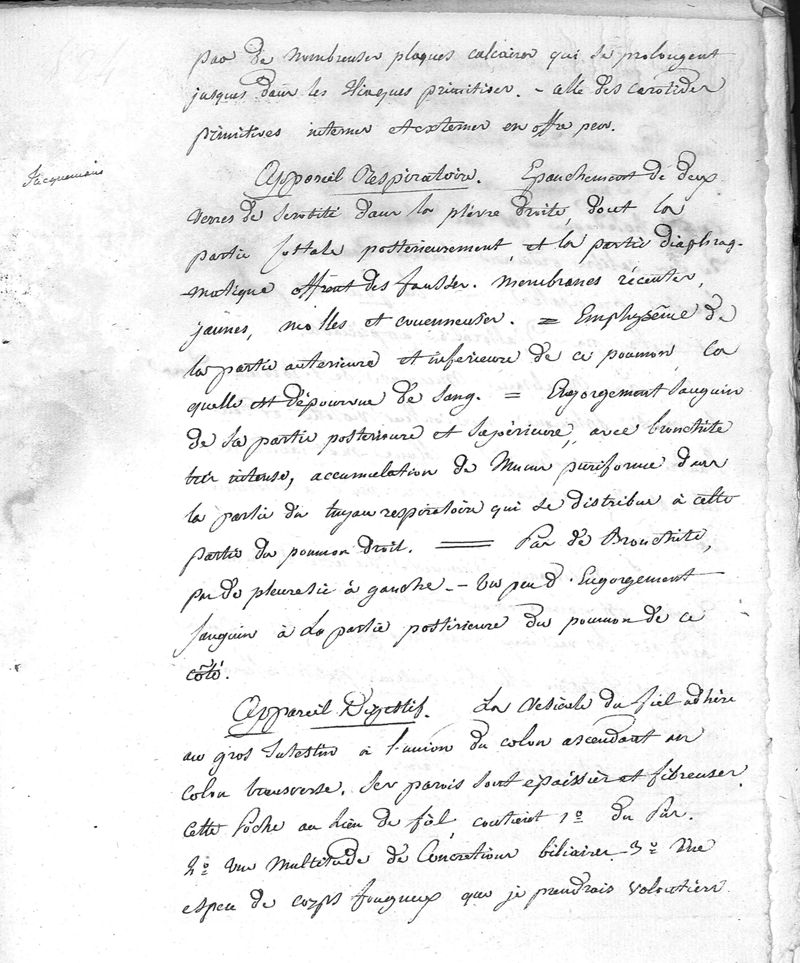 par de nombreuses plaques calcaires qui se prolongent
jusques dans les iliaques primitives. - celle des carotides
primitives internes et externes en offre peu.
Jacquemain
Appareil Respiratoire. Epanchement de deux
verres de serosité dans la plèvre droite, dont la
partie costale postérieurement, et la partie diaphrag-
matique offrent des fausses membranes récentes,
jaunes, molles et couenneuses. = Emphysême de
la partie anterieure et inferieure de ce poumon, la
quelle est dépourvue de sang. = Engorgement sanguin
de sa partie posterieure et supérieure, avec bronchite
très intense, accumulation de mucus puriforme dans
la partie du tuyau respiratoire qui se distribue à cette
partie du poumon droit. = Pas de Bronchite,
pas de pleuresie à gauche. - Un peu d'Engorgement
sanguin à la partie postérieure du poumon de ce
côté.
Appareil Digestif. La vesicule du fiel adhère
au gros intestin à l'union du colon ascendant au
colon transverse. Ses parois sont epaissies et fibreuses
cette poche au lieu de fiel, contient 1º du pus.
2º une multitude de concretions biliaires 3º une
espece de corps fongueux que je prendrais volontiers